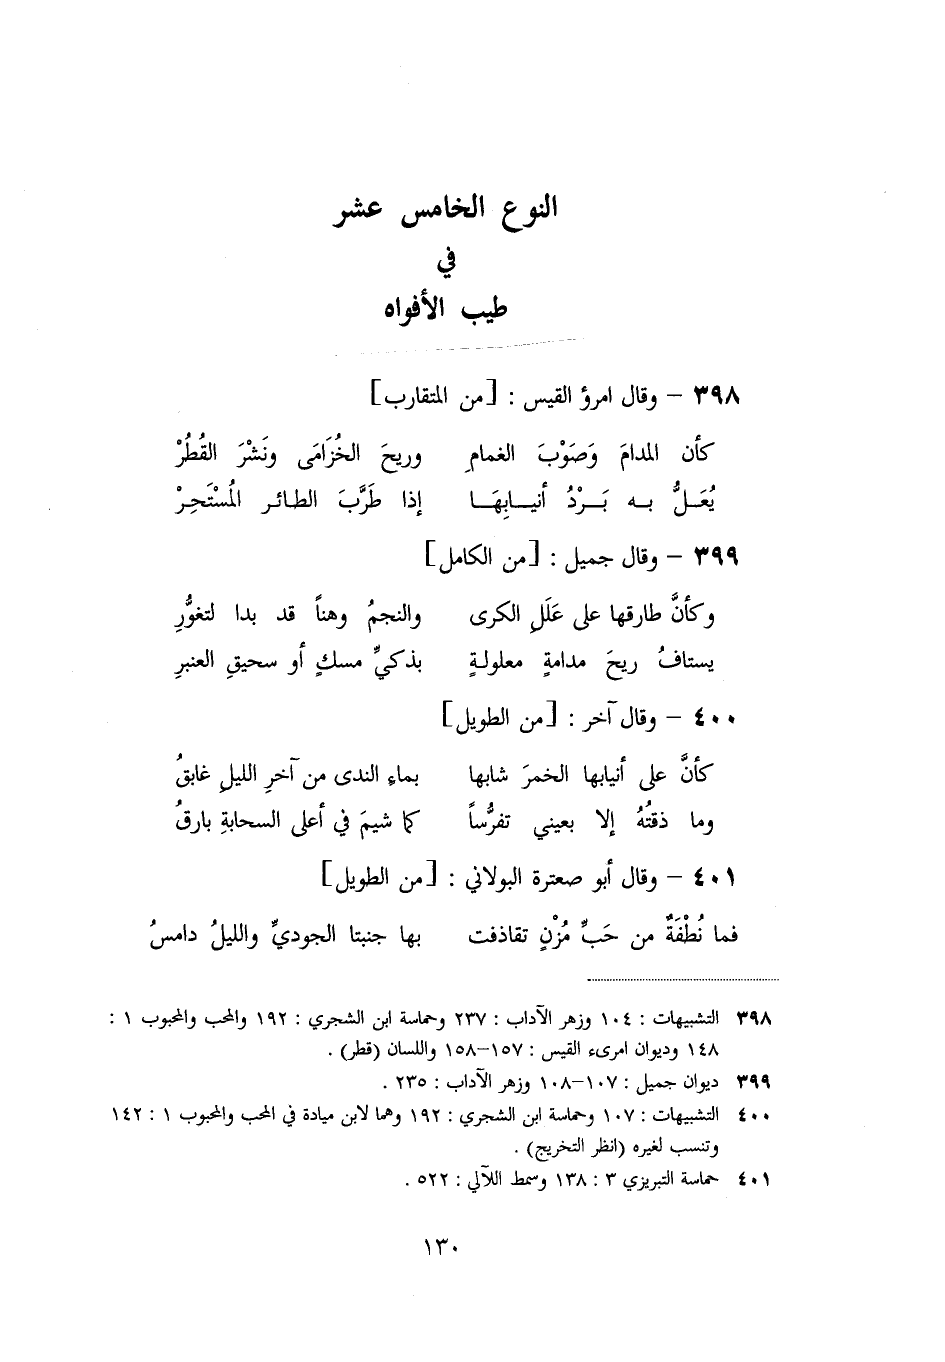 النوع الخامس عشر
في
طيب الأفواه
٣٩٨ – وقال امرؤ القيس : [من المتقارب]
كأن المدامَ وَصَوْبَ الغمامِ وريحَ الخُزَامَى ونَشْرَ القُطُرْ
يُعَلُّ به بَرْدُ أنيابِهَا إذا طَرَّبَ الطائر المُسْتَحِرْ
٣٩٩ – وقال جميل : [من الكامل]
وكأنَّ طارقها على عَلَلِ الكرى والنجمُ وهناً قد بدا لتغوُّرِ
يستافُ ريحَ مدامةٍ معلولةٍ بذكيِّ مسكٍ أو سحيقِ العنبرِ
٤٠٠ – وقال آخر : [من الطويل]
كأنَّ على أنيابها الخمرَ شابها بماءِ الندى من آخرِ الليلِ غابقُ
وما ذقتُهُ إلا بعيني تفرُّساً كما شيمَ في أعلى السحابةِ بارقُ
٤٠١ – وقال أبو صعترة البولاني : [من الطويل]
فما نُطْفَةٌ من حَبِّ مُزْنٍ تقاذفت بها جنبتا الجوديِّ والليلُ دامسُ
٣٩٨ التشبيهات : ١٠٤ وزهر الآداب : ٢٣٧ وحماسة ابن الشجري : ١٩٢ والمحب والمحبوب ١ :
١٤٨ وديوان امرىء القيس : ١٥٧–١٥٨ واللسان (قطر) .
٣٩٩ ديوان جميل : ١٠٧–١٠٨ وزهر الآداب : ٢٣٥ .
٤٠٠ التشبيهات : ١٠٧ وحماسة ابن الشجري : ١٩٢ وهما لابن ميادة في المحب والمحبوب ١ : ١٤٢
وتنسب لغيره (انظر التخريج) .
٤٠١ حماسة التبريزي ٣ : ١٣٨ وسمط اللآلي : ٥٢٢ .
١٣٠